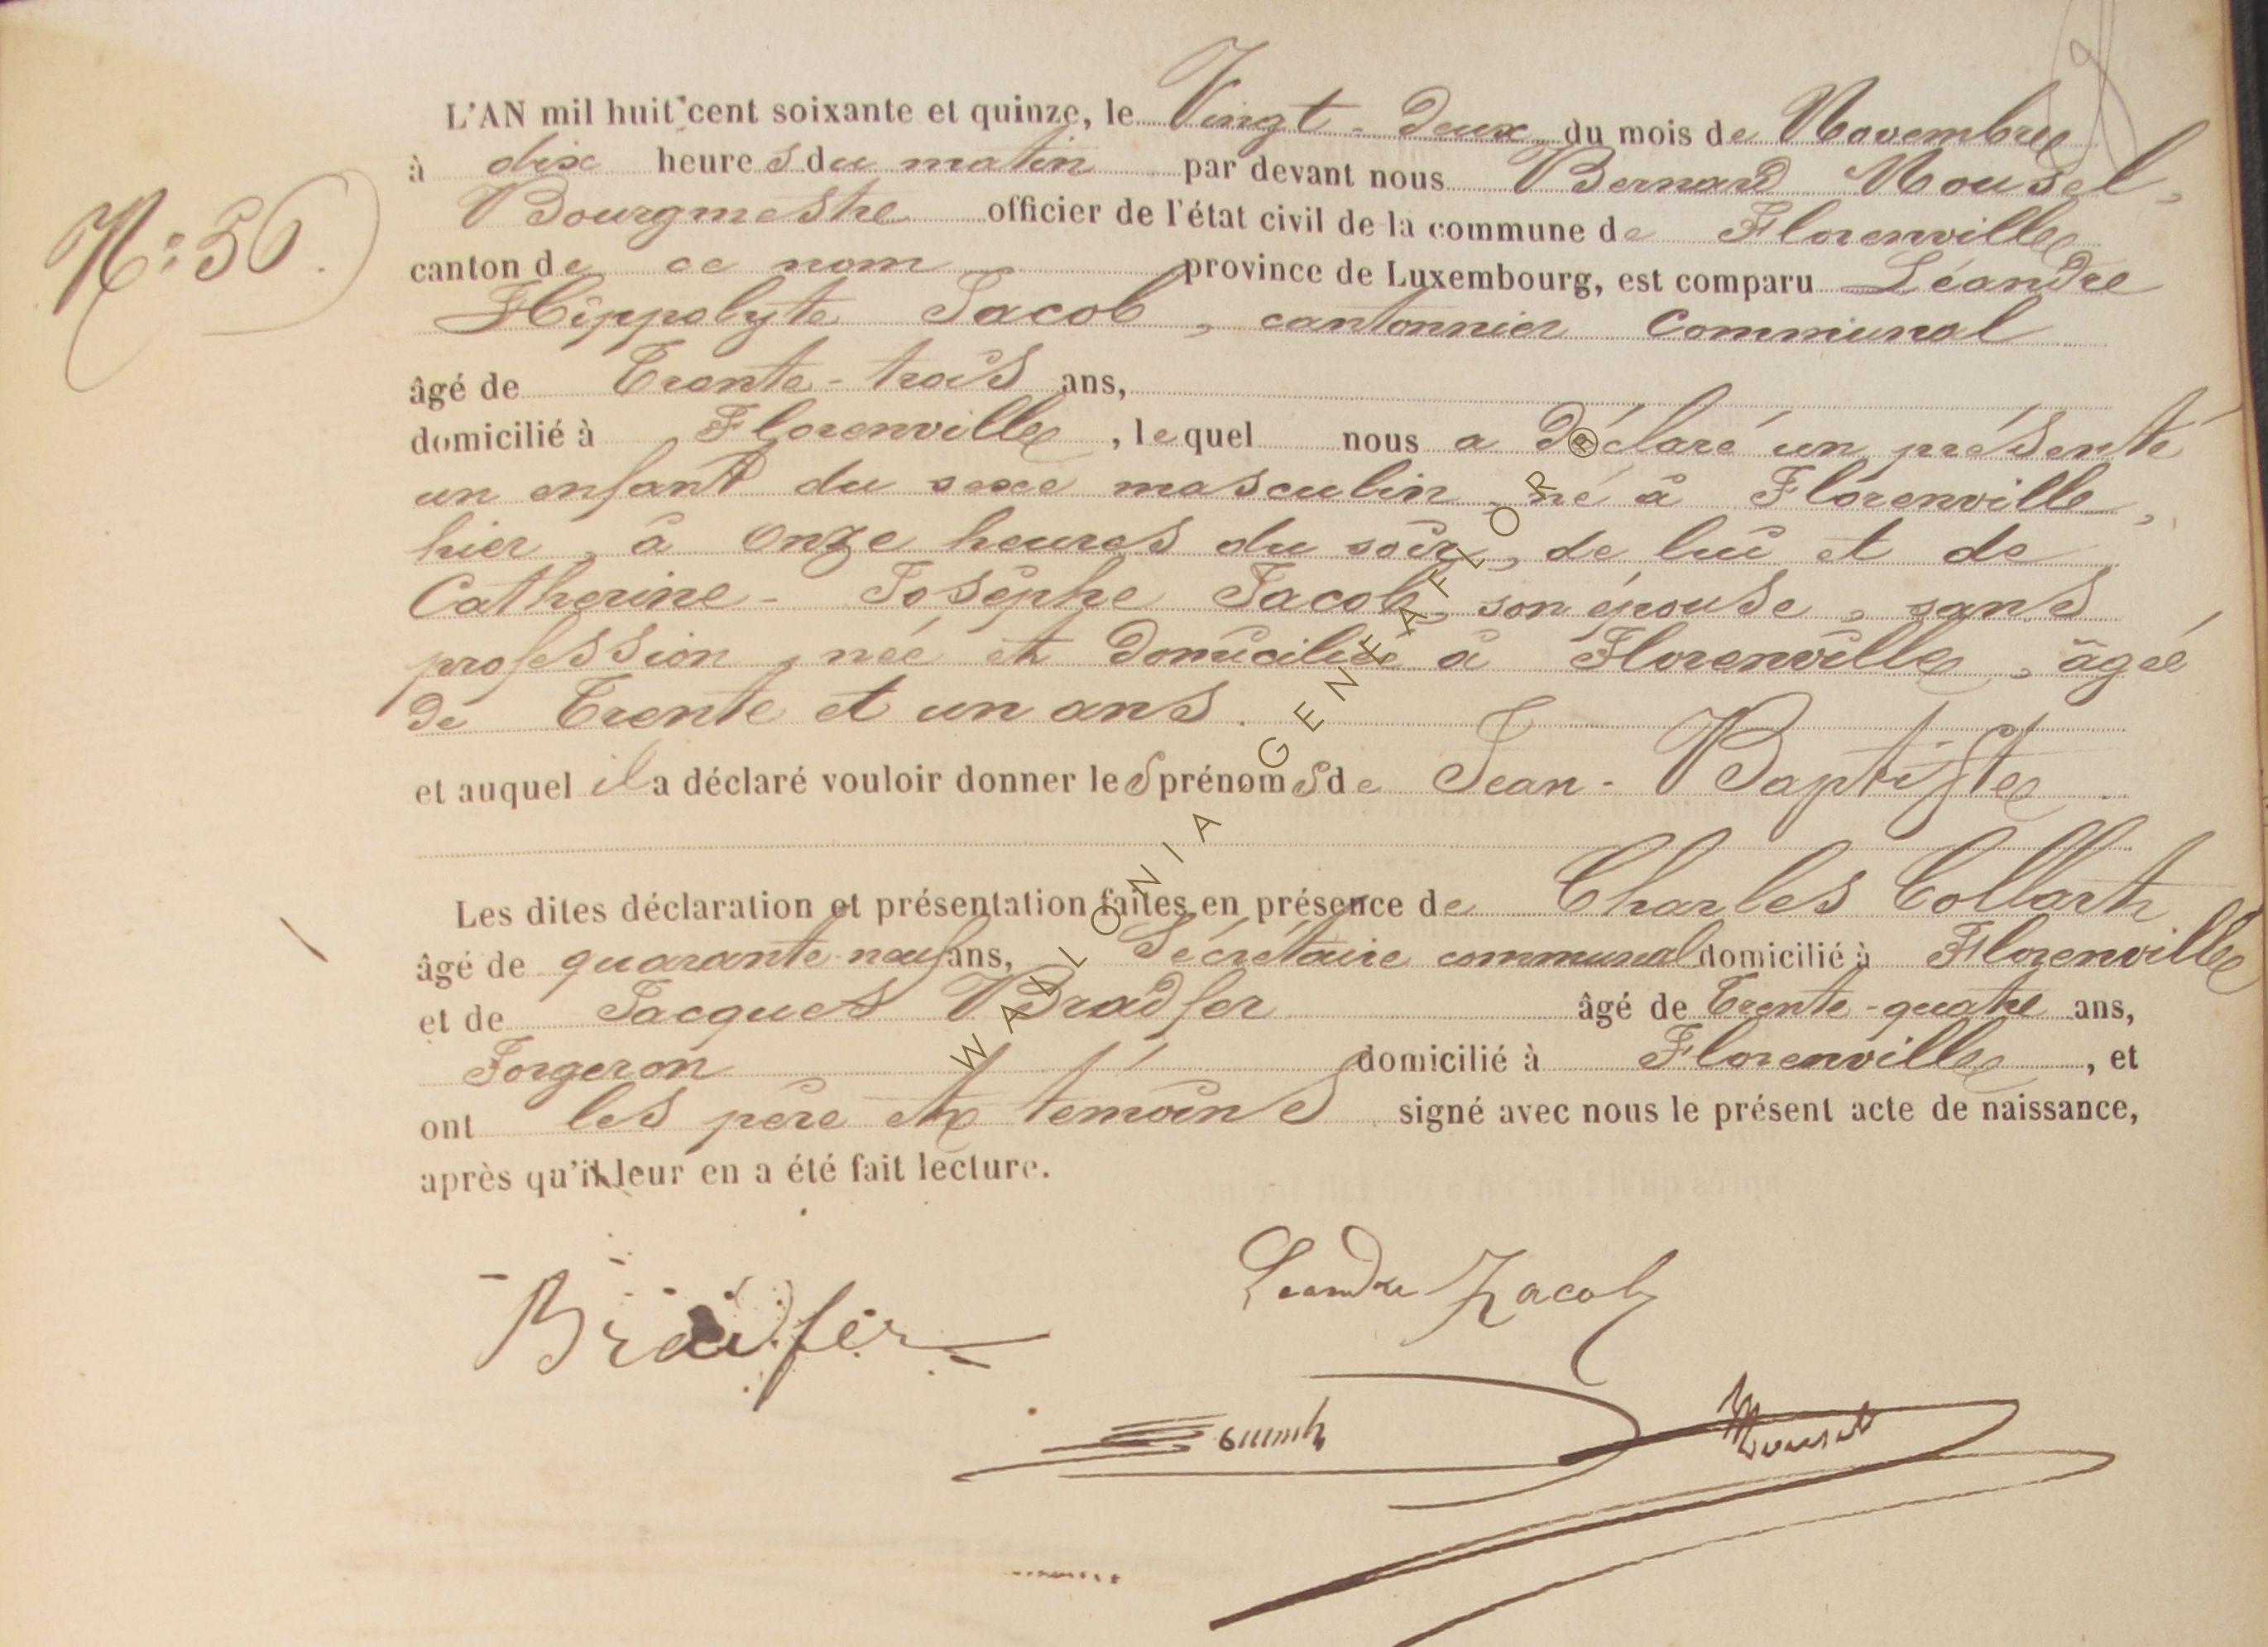 L'AN mil huit cent soixante et quinze, le Vingt-deux du mois de Novembre
à dix heures du matin par devant nous Bernard Mousel,
Bourgmestre officier de l'état civil de la commune de Florenville
N: 56.
canton de ce nom province de Luxembourg, est comparu Léandre
Hippolyte Jacob, cantonnier communal
âgé de Trente-trois ans,
domicilié à Florenville, lequel nous a déclaré un présenté
un enfant du sexe masculin, né à Florenville,
hier, à onze heures du soir, de lui et de
Catherine-Josèphe Jacob, son épouse, sans
profession, née et domiciliée à Florenville, âgée
de Trente et un ans.
et auquel il a déclaré vouloir donner les prénoms de Jean-Baptiste
Les dites déclaration et présentation faites en présence de Charles Collart
âgé de quarante-neuf ans, Sécrétaire communal domicilié à Florenville
et de Jacques Bradfer âgé de Trente-quatre ans,
Forgeron domicilié à Florenville, et
ont les père et témoins signé avec nous le présent acte de naissance,
après qu'il leur en a été fait lecture.
Léandre Jacob
Bradfer
Mousel
WALLONIA GENEAFLOR ®